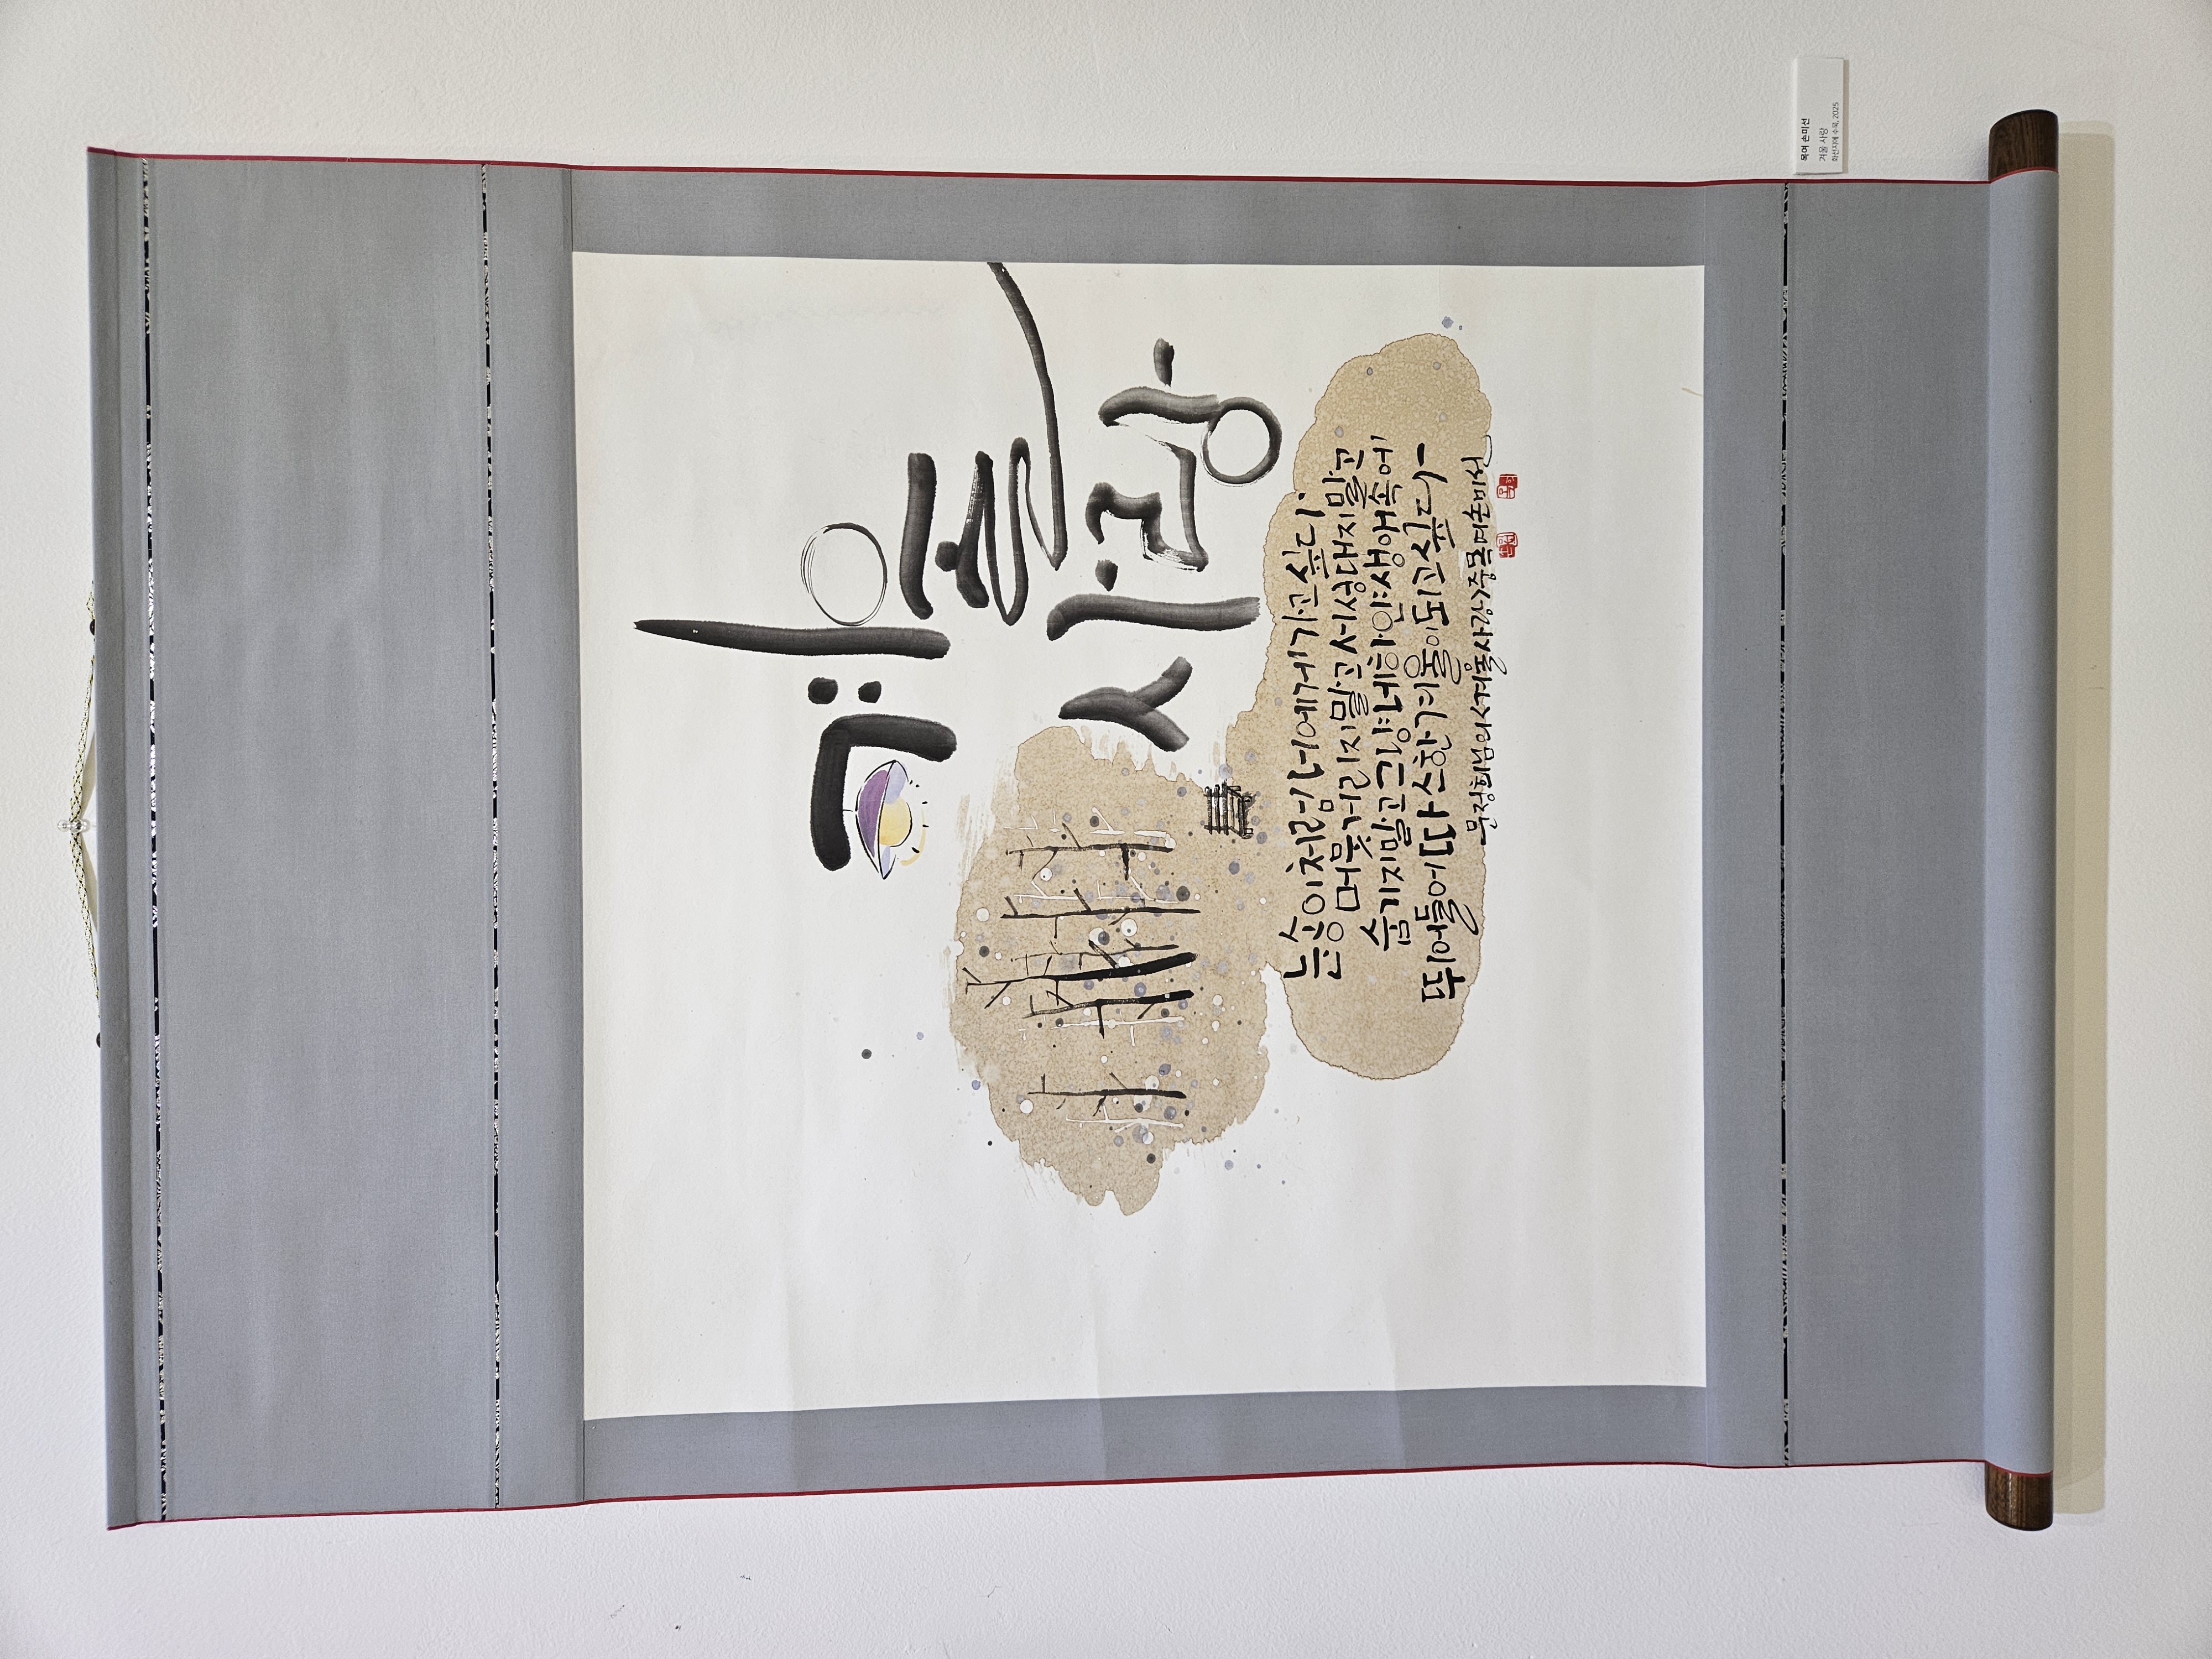 겨울
사랑
눈송이처럼 너에게 가고 싶다.
머뭇거리지 말고 서성대지 말고
숨기지 말고 그냥 네 하얀 생애 속에
뛰어들어 따스한 겨울이 되고 싶다
문정희님의 <겨울사랑> 중 목여 손미선
목여 손미선
겨울 사랑
화선지에 수묵, 2025